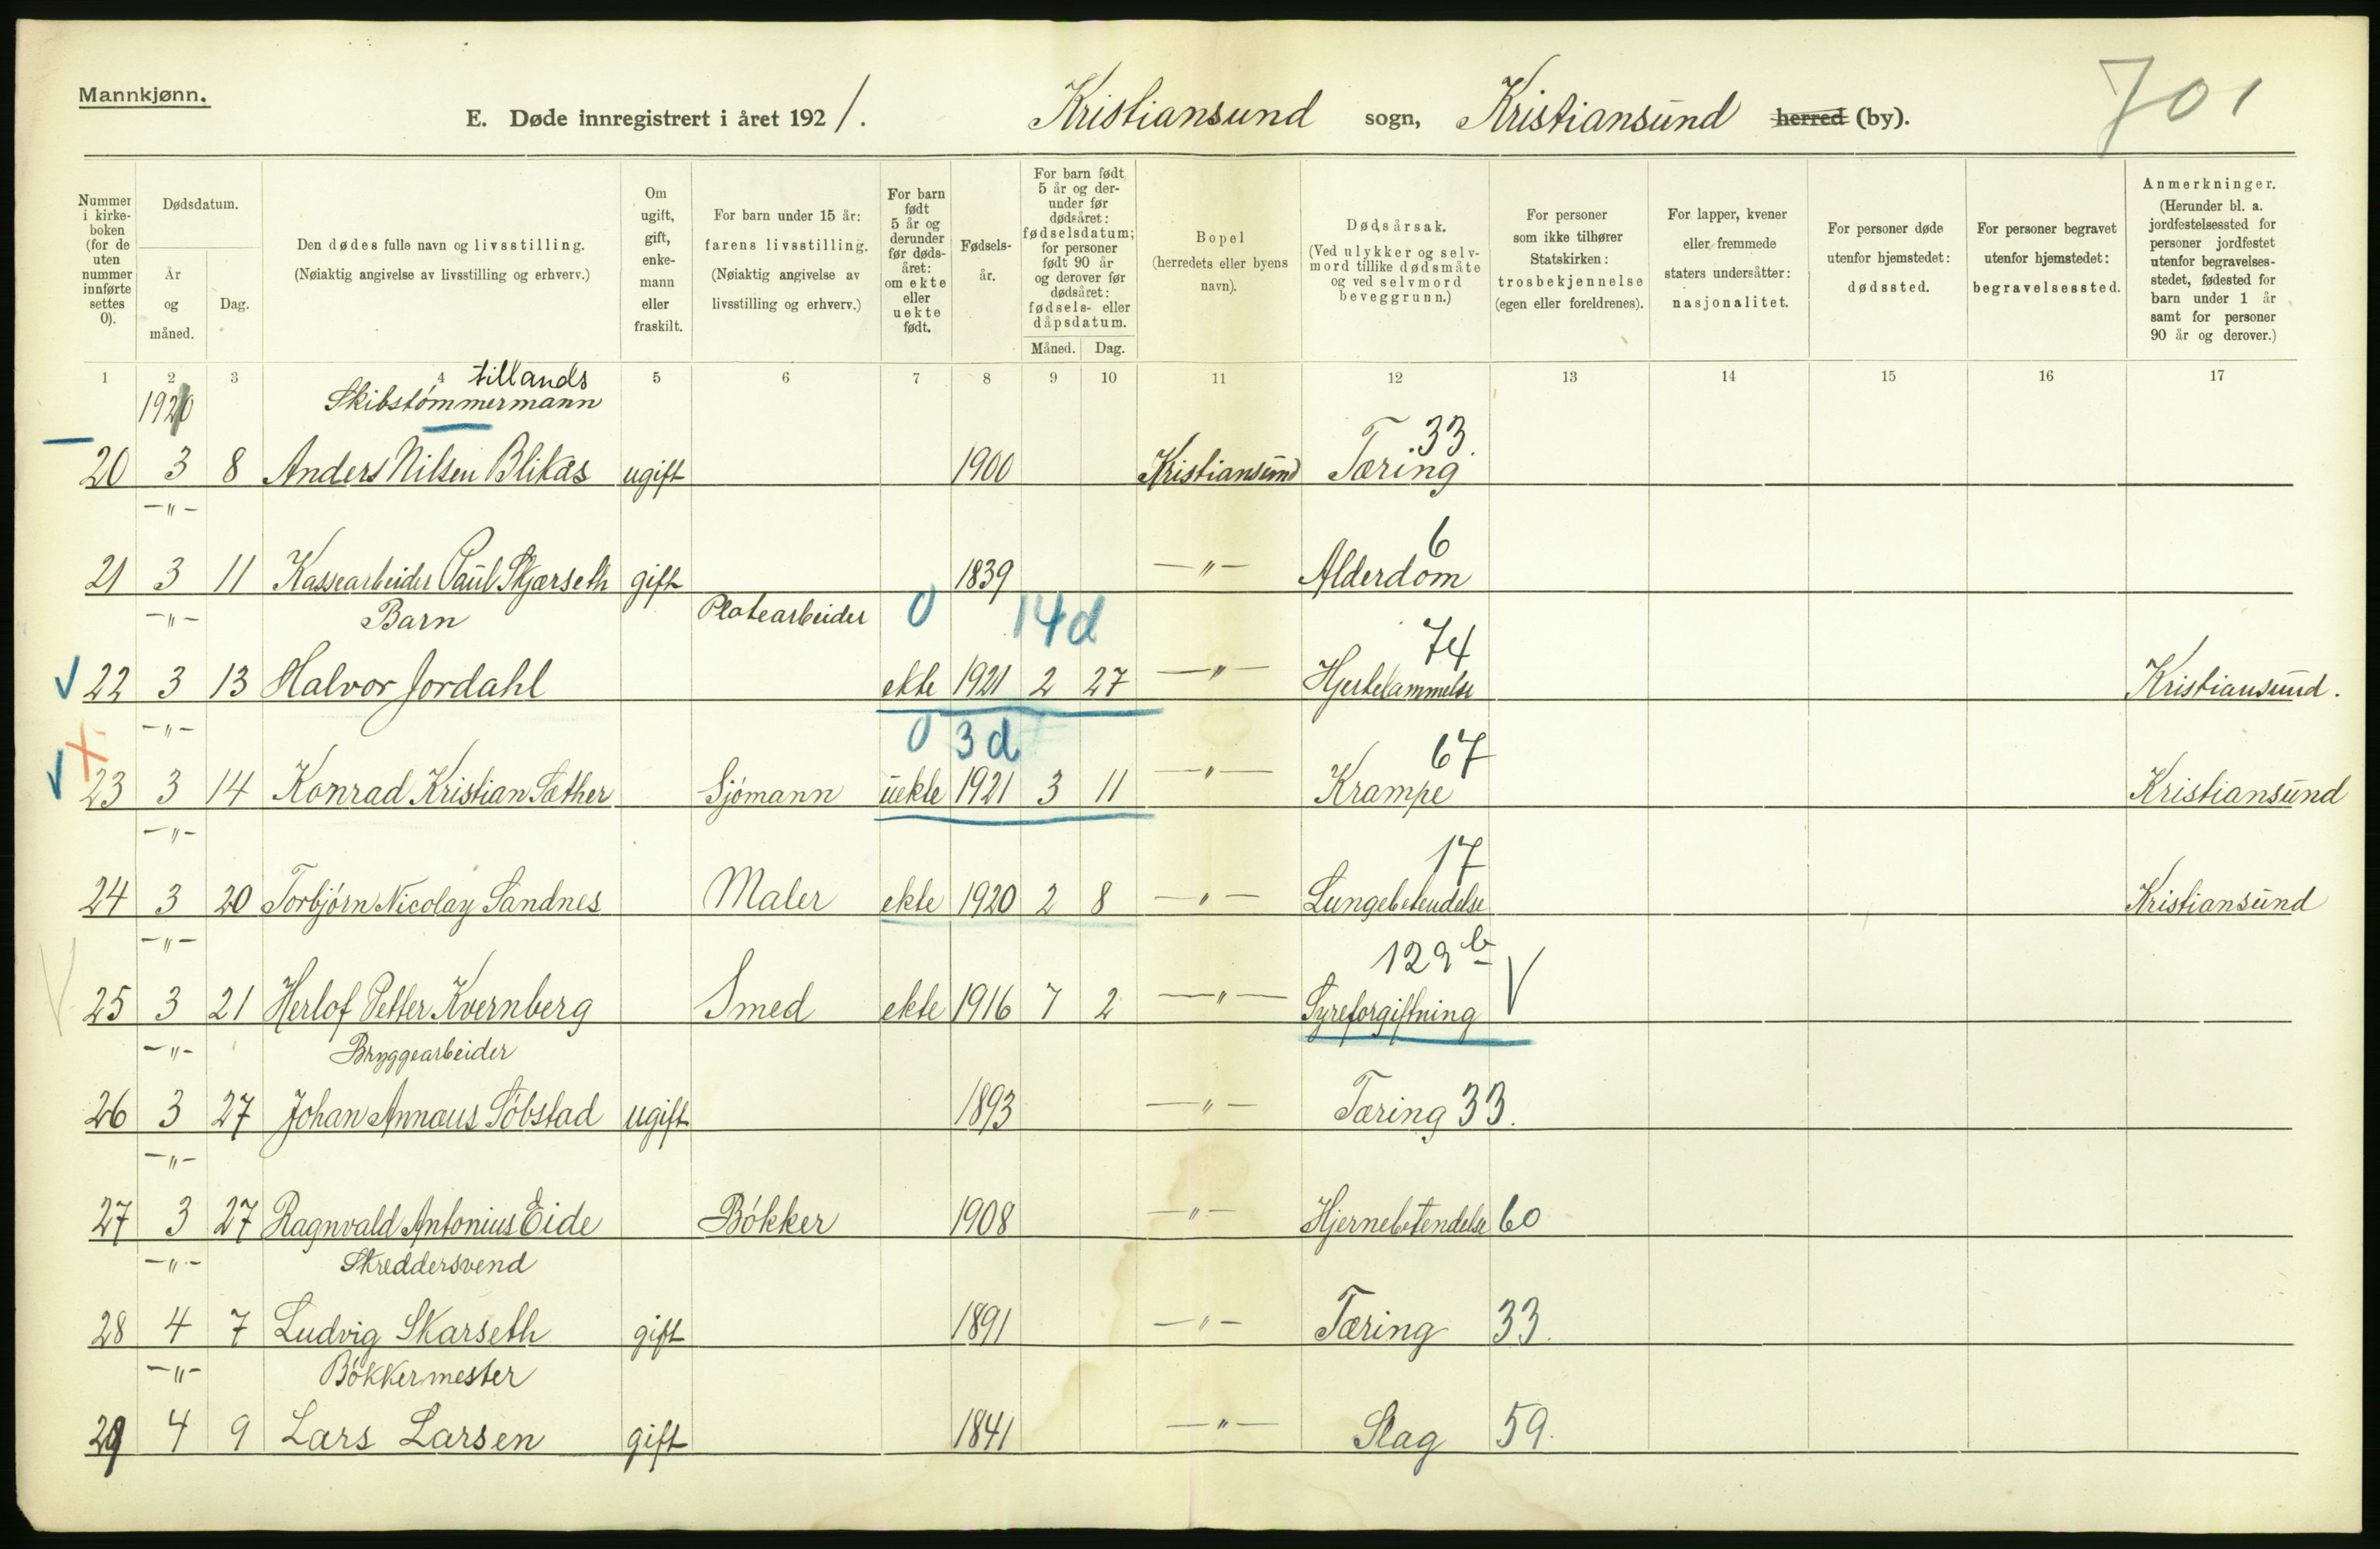 Mannkjønn.
E. Døde innregistrert i året 1921. Kristiansund sogn, Kristiansund herred (by). 701
Nummer i kirkeboken (for de uten nummer innførte settes 0).
Dødsdatum.
År og måned.
Dag.
Den dødes fulle navn og livsstilling. (Nøiaktig angivelse av livsstilling og erhverv.)
Om ugift, gift, enkemann eller fraskilt.
For barn under 15 år: farens livsstilling. (Nøiaktig angivelse av livsstilling og erhverv.)
For barn født 5 år og derunder før dødsåret: om ekte eller uekte født.
Fødselsår.
For barn født 5 år og derunder før dødsåret: fødselsdatum; for personer født 90 år og derover før dødsåret: fødsels- eller dåpsdatum.
Måned. Dag.
Bopel (herredets eller byens navn).
Dødsårsak. (Ved ulykker og selvmord tillike dødsmåte og ved selvmord beveggrunn.)
For personer som ikke tilhører Statskirken: trosbekjennelse (egen eller foreldrenes).
For lapper, kvener eller fremmede staters undersåtter: nasjonalitet.
For personer døde utenfor hjemstedet: dødssted.
For personer begravet utenfor hjemstedet: begravelsessted.
Anmerkninger. (Herunder bl. a. jordfestelsessted for personer jordfestet utenfor begravelsesstedet, fødested for barn under 1 år samt for personer 90 år og derover.)
1 2 3 4 5 6 7 8 9 10 11 12 13 14 15 16 17
tillands
1921 Skibstømmermann
20 3 8 Anders Nilsen Blikås ugift 1900 Kristiansund Tæring 33.
-"-
21 3 11 Kassearbeider Paul Skjærseth gift 1839 -"- Alderdom 6
-"- Barn Platearbeider 0 14d
22 3 13 Halvor Jordahl ekte 1921 2 27 -"- Hjertelammelse 74 Kristiansund.
-"- 0 3d
23 3 14 Konrad Kristian Sæther Sjømann uekte 1921 3 11 -"- Krampe 67 Kristiansund
-"-
24 3 20 Torbjørn Nicolay Sandnes Maler ekte 1920 2 8 -"- Lungebetendelse 17 Kristiansund
-"-
25 3 21 Herlof Petter Kvernberg Smed ekte 1916 7 2 -"- Syreforgiftning 129 b
-"- Bryggearbeider
26 3 27 Johan Annæus Søbstad ugift 1893 -"- Tæring 33.
-"-
27 3 27 Ragnvald Antonius Eide Bøkker 1908 -"- Hjernebetendelse 60
-"- Skreddersvend
28 4 7 Ludvig Skarseth gift 1891 -"- Tæring 33.
-"- Bøkkermester
29 4 9 Lars Larsen gift 1841 -"- Slag 59.